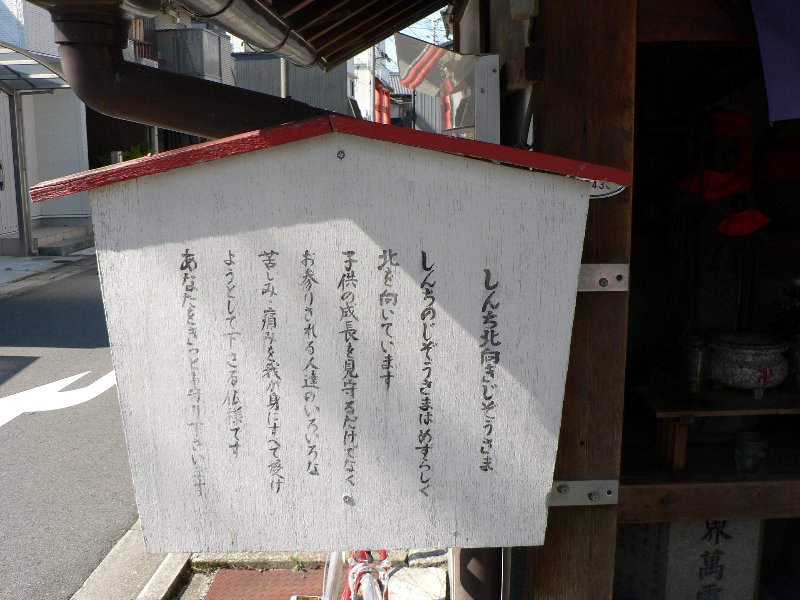 しんち北向きじぞうさま
しんちのじぞうさまはめずらしく
北を向いています
子供の成長を見守るだけでなく
お参りされる人達のいろいろな
苦しみ・痛みを我が身にすべて受け
ようとして下さる仏様です
あなたをきっとお守り下さいます
界萬霊